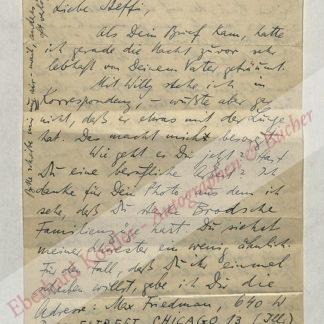 Liebe Steffi,
Als Dein Brief kam, hatte
ich gerade die Nacht zuvor sehr
lebhaft von Deinem Vater geträumt.
Mit Willy stehe ich in
Korrespondenz, – wusste aber gar
nicht, daß er etwas mit der Lunge
hat. Das macht mich besorgt.
Wie geht es Dir jetzt? Hast
Du eine berufliche Arbeit? Ich
danke für Dein Photo, aus dem ich
sehe, daß Du starke Brodsche
Familienzüge hast. Du siehst
meiner Schwester ein wenig ähnlich.
Für den Fall, daß Du ihr einmal
schreiben willst, gebe ich Dir die
Adresse: Max Friedman, 640 W
CHICAGO 13 (Ill.)
Bitte schreibe mir air-mail, anders
Eberhard Köstler - Autographen & Bücher